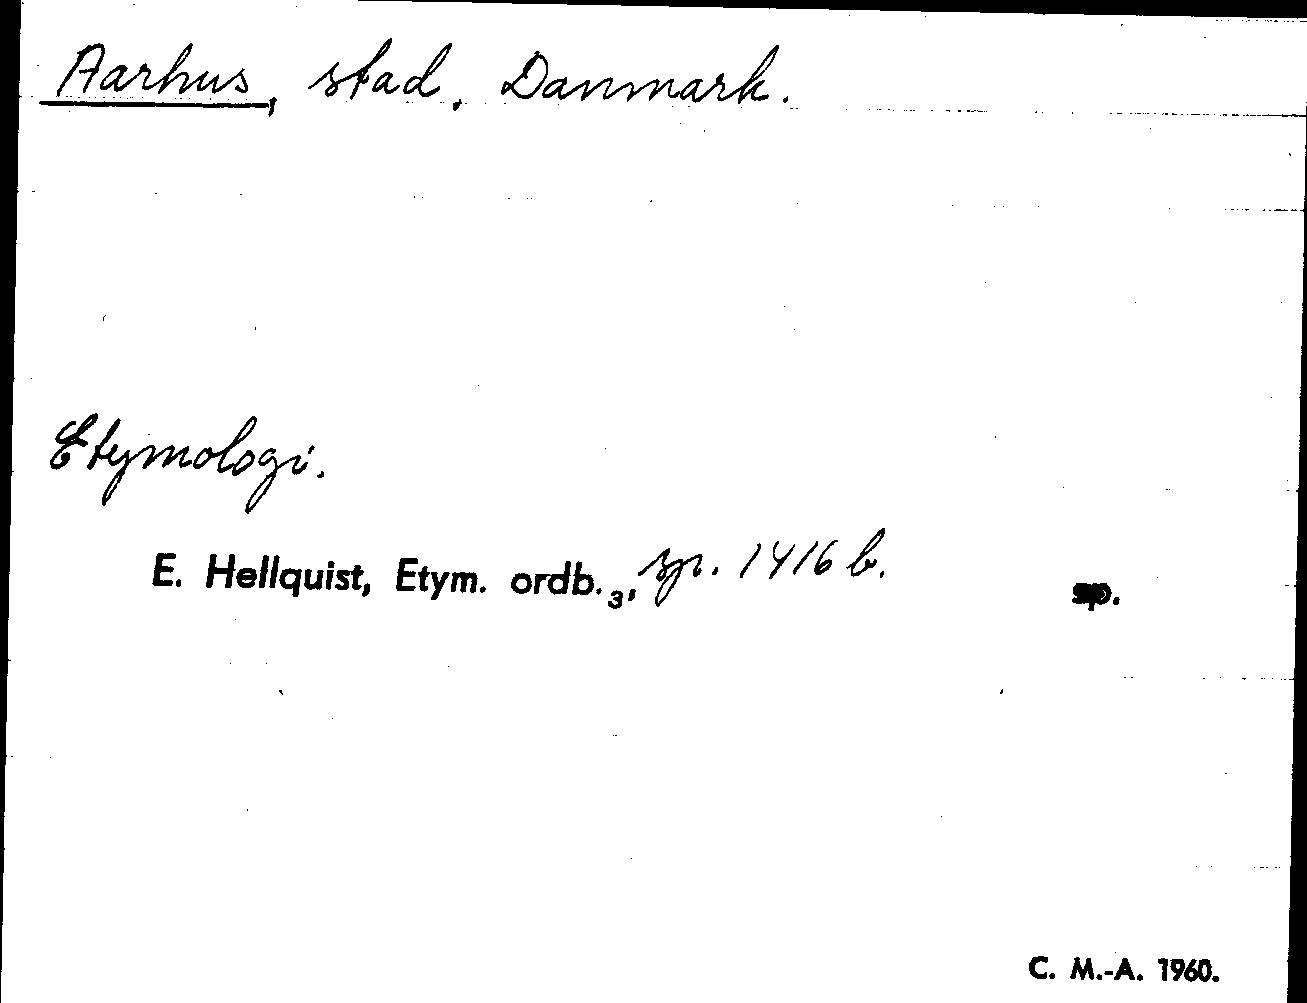 Aarhus, stad, Danmark.
Etymologi.
E. Hellquist, Etym. ordb.₃, sp. 1416 b. sp.
C. M.-A. 1960.